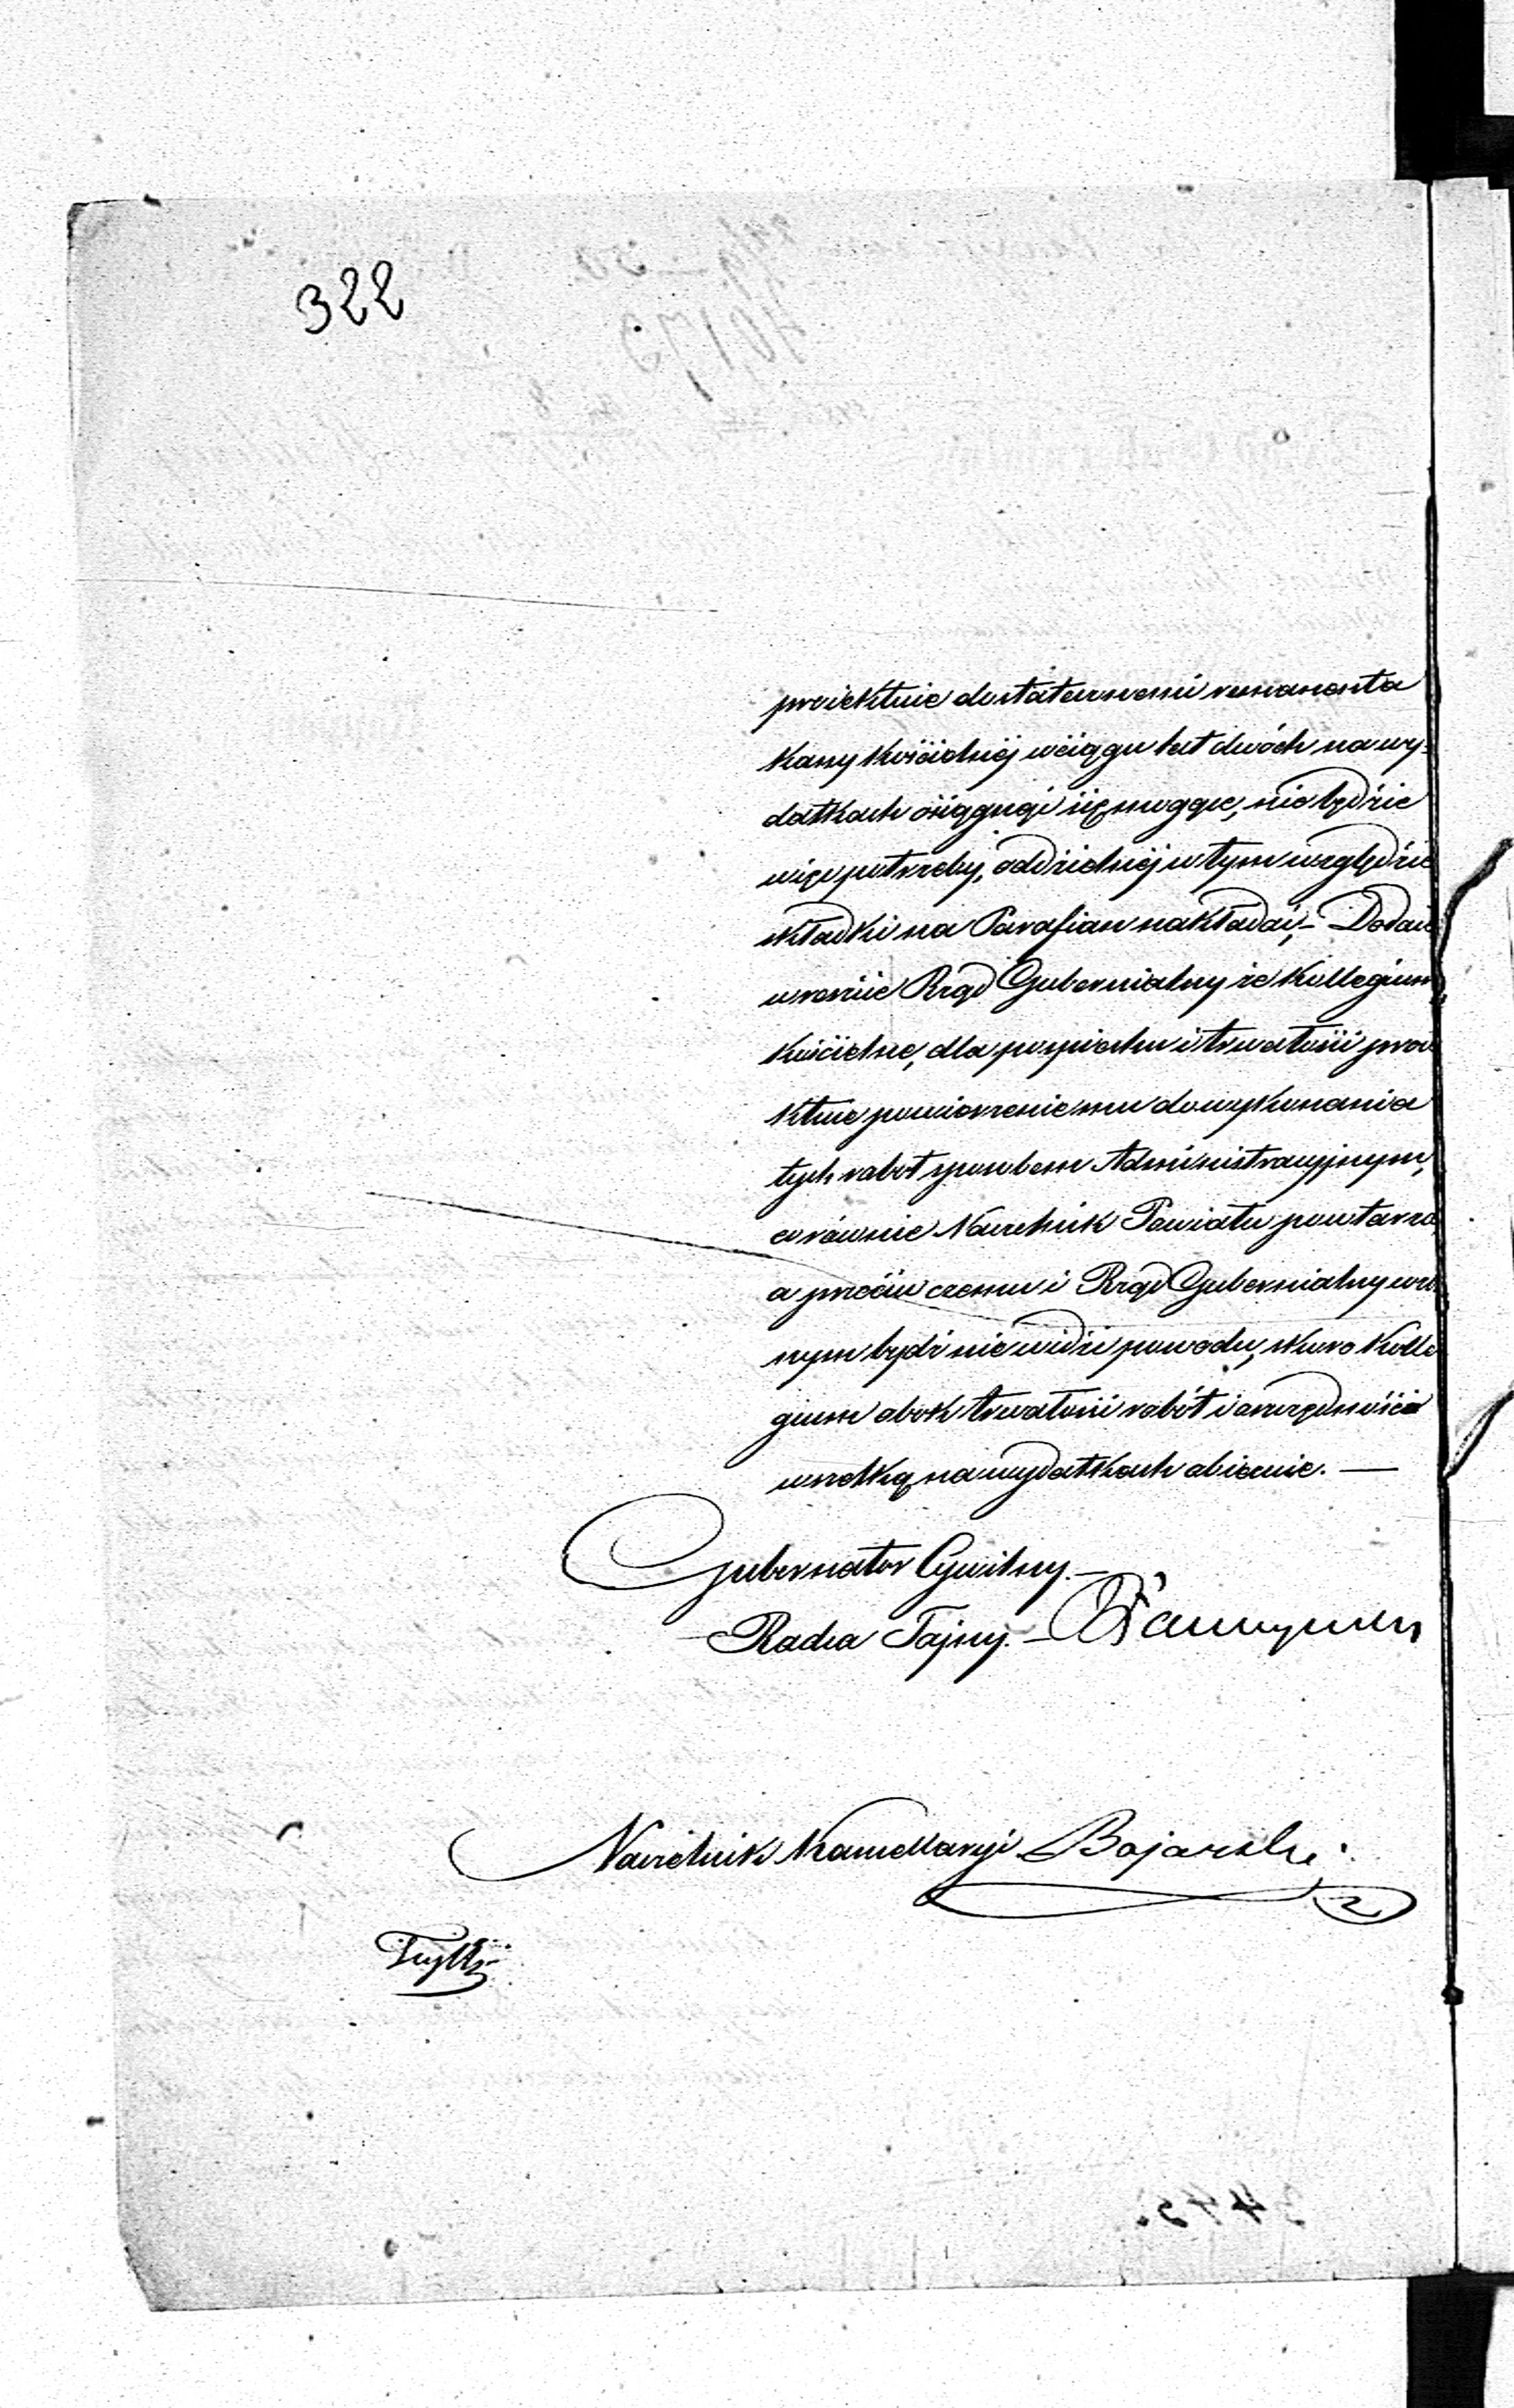 322
proiektuie dostatecznemi remanenta
Kassy Kościelnéj wciągu lat dwóch na wy=
datkach osiągnąć się mogące, nie będzie
więc potrzeby, oddzielnéj w tym względzie
składki na Parafian nakładać, – Dodaie
wreście Rząd Gubernialny że Kollegium
Kościelne, dla pospiechu i trwałości proie
ktuie powierzenie mu do wykonania
tych robot sposobem Administracyjnym,
co równie Naczelnik Powiatu powtarza,
a przeciw czemu i Rząd Gubernialny
nym bydź nie widzi powodu, skoro Kolle
gium obok trwałości robót i oszczędność
wszelką na wydatkach obiecuie. —
Gubernator Cywilny. —
Radca Tajny. —
Naczelnik Kancellaryi Bojarski